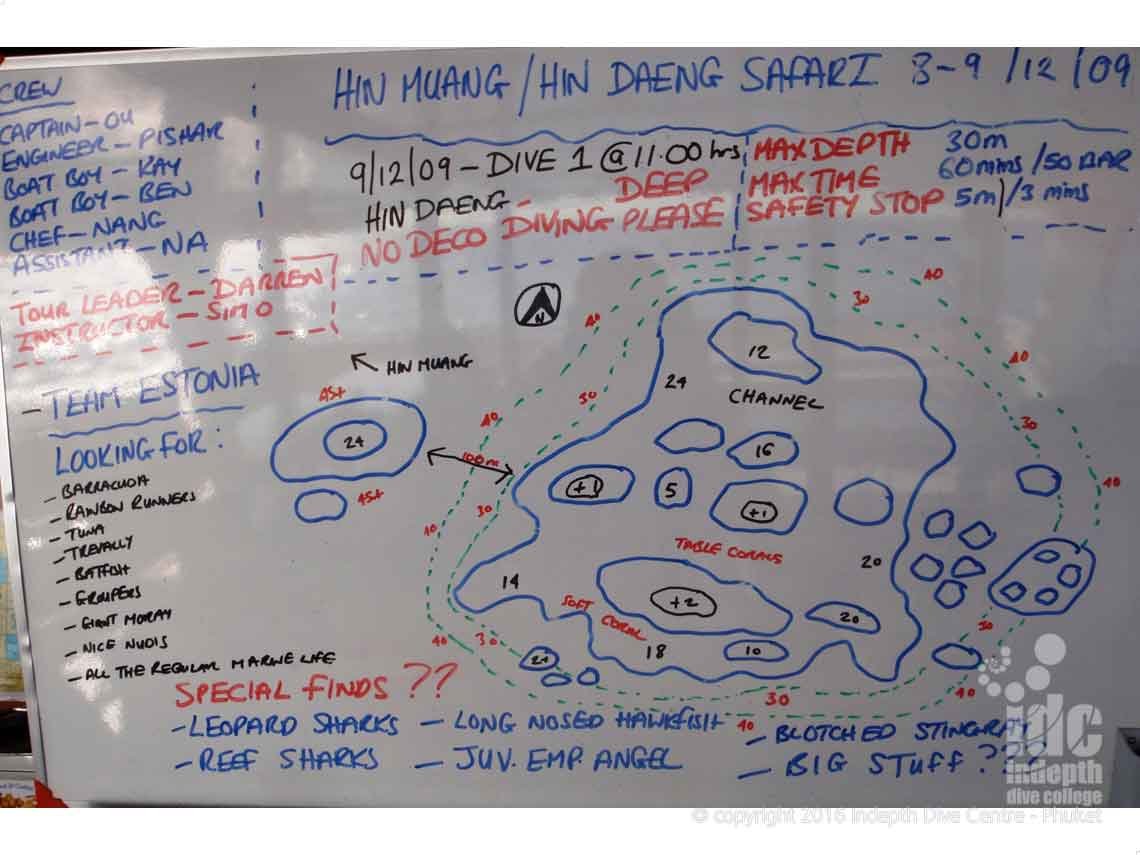 HIN MUANG / HIN DAENG SAFARI 8-9 /12 /09
CREW
CAPTAIN - OU
ENGINEER - PISHAR
BOAT BOY - KAY
BOAT BOY - BEN
CHEF - NANG
ASSISTANT - NA
TOUR LEADER - DARREN
INSTRUCTOR - SIMO
9/12/09 - DIVE 1 @ 11.00 hrs
HIN DAENG - DEEP
NO DECO DIVING PLEASE
MAX DEPTH 30m
MAX TIME 60mins / 50 BAR
SAFETY STOP 5m / 3 mins
- TEAM ESTONIA
LOOKING FOR:
- BARRACUDA
- RAINBOW RUNNERS
- TUNA
- TREVALLY
- BATFISH
- GROUPERS
- GIANT MORAY
- NICE NUDIS
- ALL THE REGULAR MARINE LIFE
N
HIN MUANG
45+
24
45+
100m
40
40
30
40
12
24
CHANNEL
40
30
40
30
40
16
+1
5
+1
30
40
TABLE CORALS
20
14
SOFT CORAL
+2
20
18
10
40
30
30
40
30
40
SPECIAL FINDS ??
- LEOPARD SHARKS - LONG NOSED HAWKFISH - BLOTCHED STINGRAY
- REEF SHARKS - JUV. EMP. ANGEL - BIG STUFF ???
idc
indepth
dive college
© copyright 2016 Indepth Dive Centre - Phuket